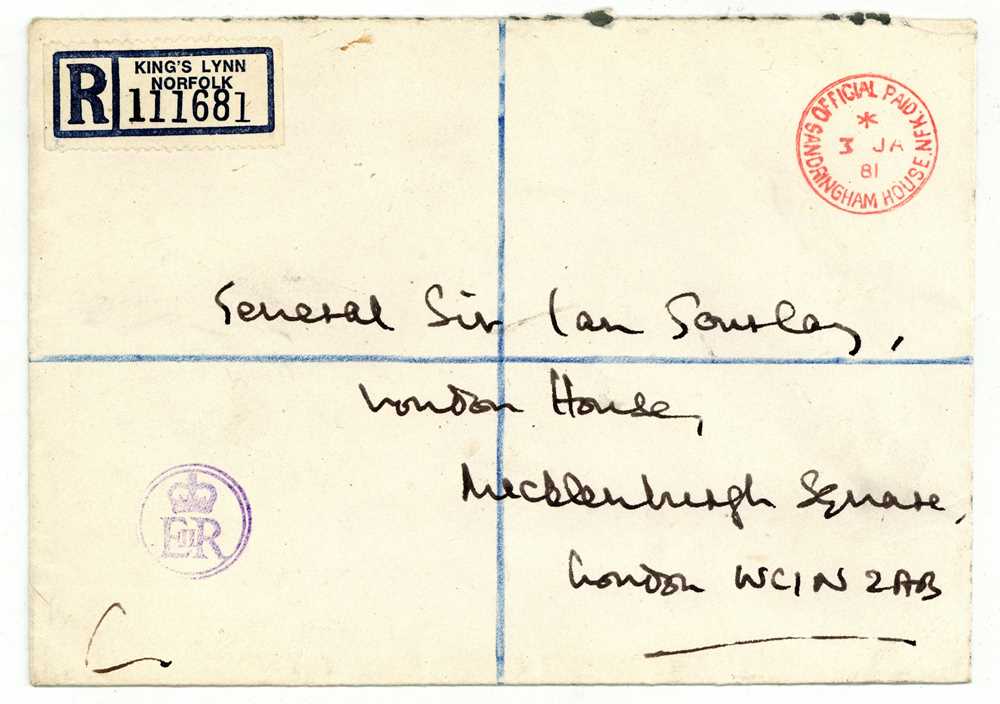 R
KING'S LYNN
NORFOLK
111681
OFFICIAL PAID
*
3 JA
81
SANDRINGHAM HOUSE. NFK
General Sir Ian Gourlay,
London House,
Mecklenburgh Square,
London WC1N 2AB
EIIR